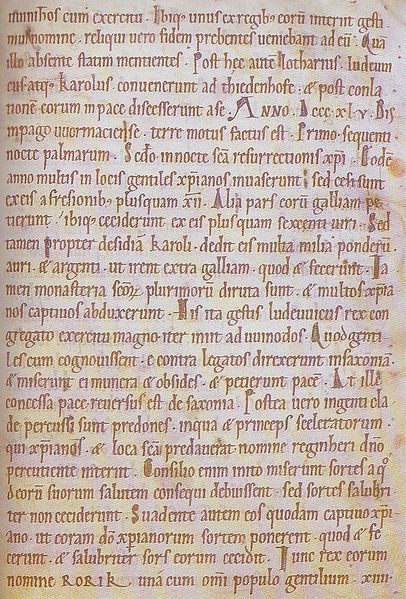 inimicos cum exercitu · Ibiq; unus ex regib; eorū interiit gesti
mus nomine · reliqui uero fidem prebentes ueniebant ad eū · Quā
illo absente statim mentientes · Post hec autē Lotharius, ludeuui
cus atq; Karolus · conuenerunt ad thiedenhofe · & post conla
tionē eorum in pace discesserunt a se · ANNO · Dccc · xl · v · Bis
in pago uuormaciense · terre motus factus est · Primo · sequenti
nocte palmarum · Scdo · in nocte scā resurrectionis xpi · Eodē
anno multis in locis gentiles xpianos inuaserunt · sed cesi sunt
ex eis a fresionib; plusquam xii · Alia pars eorū galliam pe
tierunt · ibiq; ceciderunt ex eis plusquam sexcenti uiri · Sed
tamen propter desidiā karoli · dedit eis multa milia ponderū
auri · & argenti · ut irent extra galliam · quod & fecerunt · Ta
men monasteria scōꝝ plurimorū diruta sunt · & multos xpia
nos captiuos abduxerunt · His ita gestis ludeuuicus rex con
gregato exercitu magno · iter iniit ad uuinodos · Quod genti
les cum cognouissent · e contra legatos direxerunt in saxoniā ·
& miserunt ei munera & obsides · & petierunt pacē · At ille
concessa pace reuersus est de saxonia · Postea uero ingenti cla
de percussi sunt predones · in qua & princeps sceleratorum ·
qui xpianos · & loca scā predauerat nomine reginheri dno
percutiente interiit · Consilio enim inito miserunt sortes a quo
deorū suorum salutem consequi debuissent · sed sortes salubri
ter non ceciderunt · Suadente autem eos quodam captiuo xpi
ano · ut coram dō xpianorum sortem ponerent · quod & fe
cerunt · & salubriter sors eorum cecidit · Tunc rex eorum
nomine RORIK · unā cum omi populo gentilium · xiiii ·